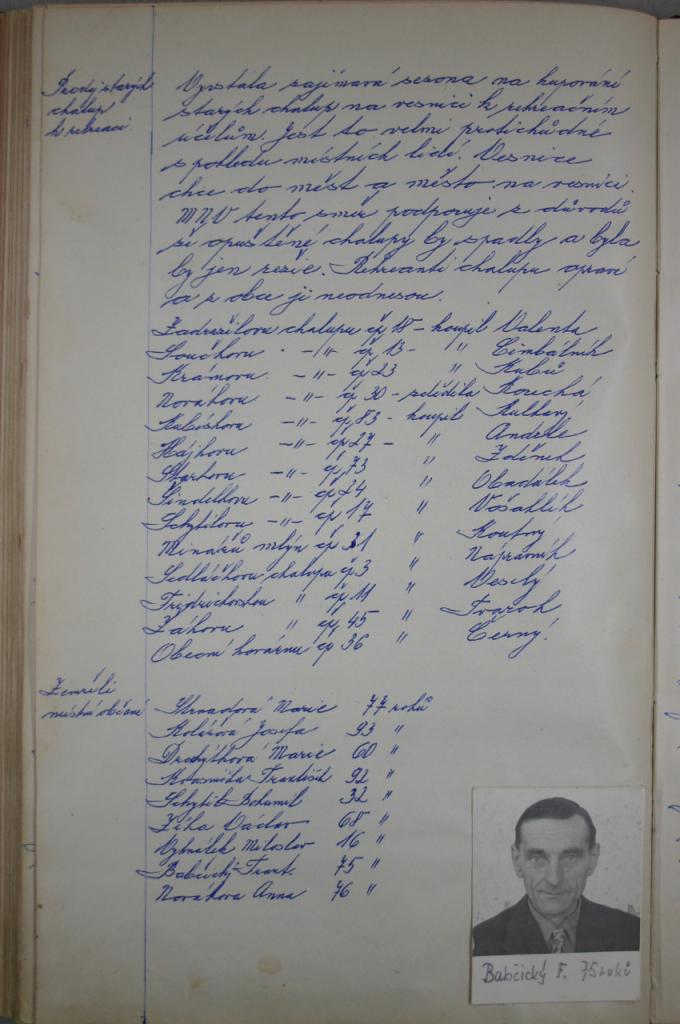 Prodej starých
chalup
k rekreaci
Vyvstala zajímavá sezona na kupování
starých chalup na vesnici k rekreačním
účelům. Jest to velmi protichůdné
s pohledu místních lidí. Vesnice
chce do měst a město na vesnici.
MNV tento směr podporuje z důvodů
že opuštěné chalupy by spadly a byla
by jen zeříc. Rekreanti chalupu opraví
a z obce ji neodnesou.
Zadražilovu chalupu čp 18 - koupil Valenta
Součkovu -"- čp 13 - " Cimbálník
Krámovu -"- čp 23 " Kubů
Novákovu -"- čp 30 - zdědila Kozechá
Kubiskova -"- čp 83 - koupil Kulhavý
Hájkovu -"- čp 27 - " Anderle
Starkovu -"- čp 73 " Zděnek
Šindelkovu -"- čp 24 " Obadálek
Schytilovu -"- čp 17 " Vošahlík
Minářů mlýn čp 31 " Koutný
Sedláčkovu chalupu čp 3 " Nápravník
Fridrichovskou " čp 11 " Veselý
Zákovu " čp 45 " Tvaroh
Obecní kovárnu čp 36 " Černý.
Zemřeli
místní občané
Strnadová Marie 77 roků
Kolářová Josefa 93 "
Drahýtková Marie 60 "
Kvasnička František 92 "
Schytil Bohumil 32 "
Zíka Václav 68 "
Vyhnálek Miloslav 16 "
Babčický Frant. 75 "
Novákova Anna 76 "
Babčický F. 75 roků